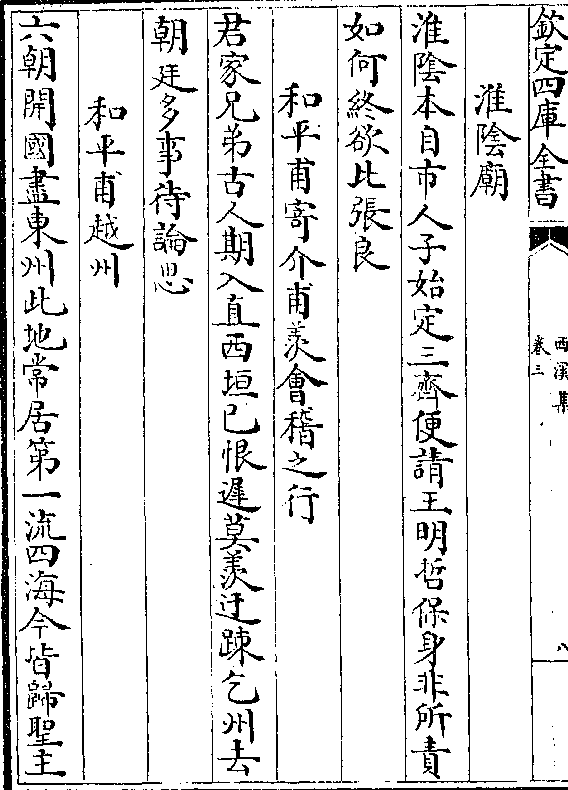 欽定四庫全書
西溪集
卷三
八
淮陰廟
淮陰本自市人子始定三齊便請王明哲保身非所責
如何終欲比張良
和平甫寄介甫羡會稽之行
君家兄弟古人期入直西垣已恨遲莫羡迂踈乞州去
朝廷多事待論思
和平甫越州
六朝開國盡東州此地常居第一流四海今皆歸聖主